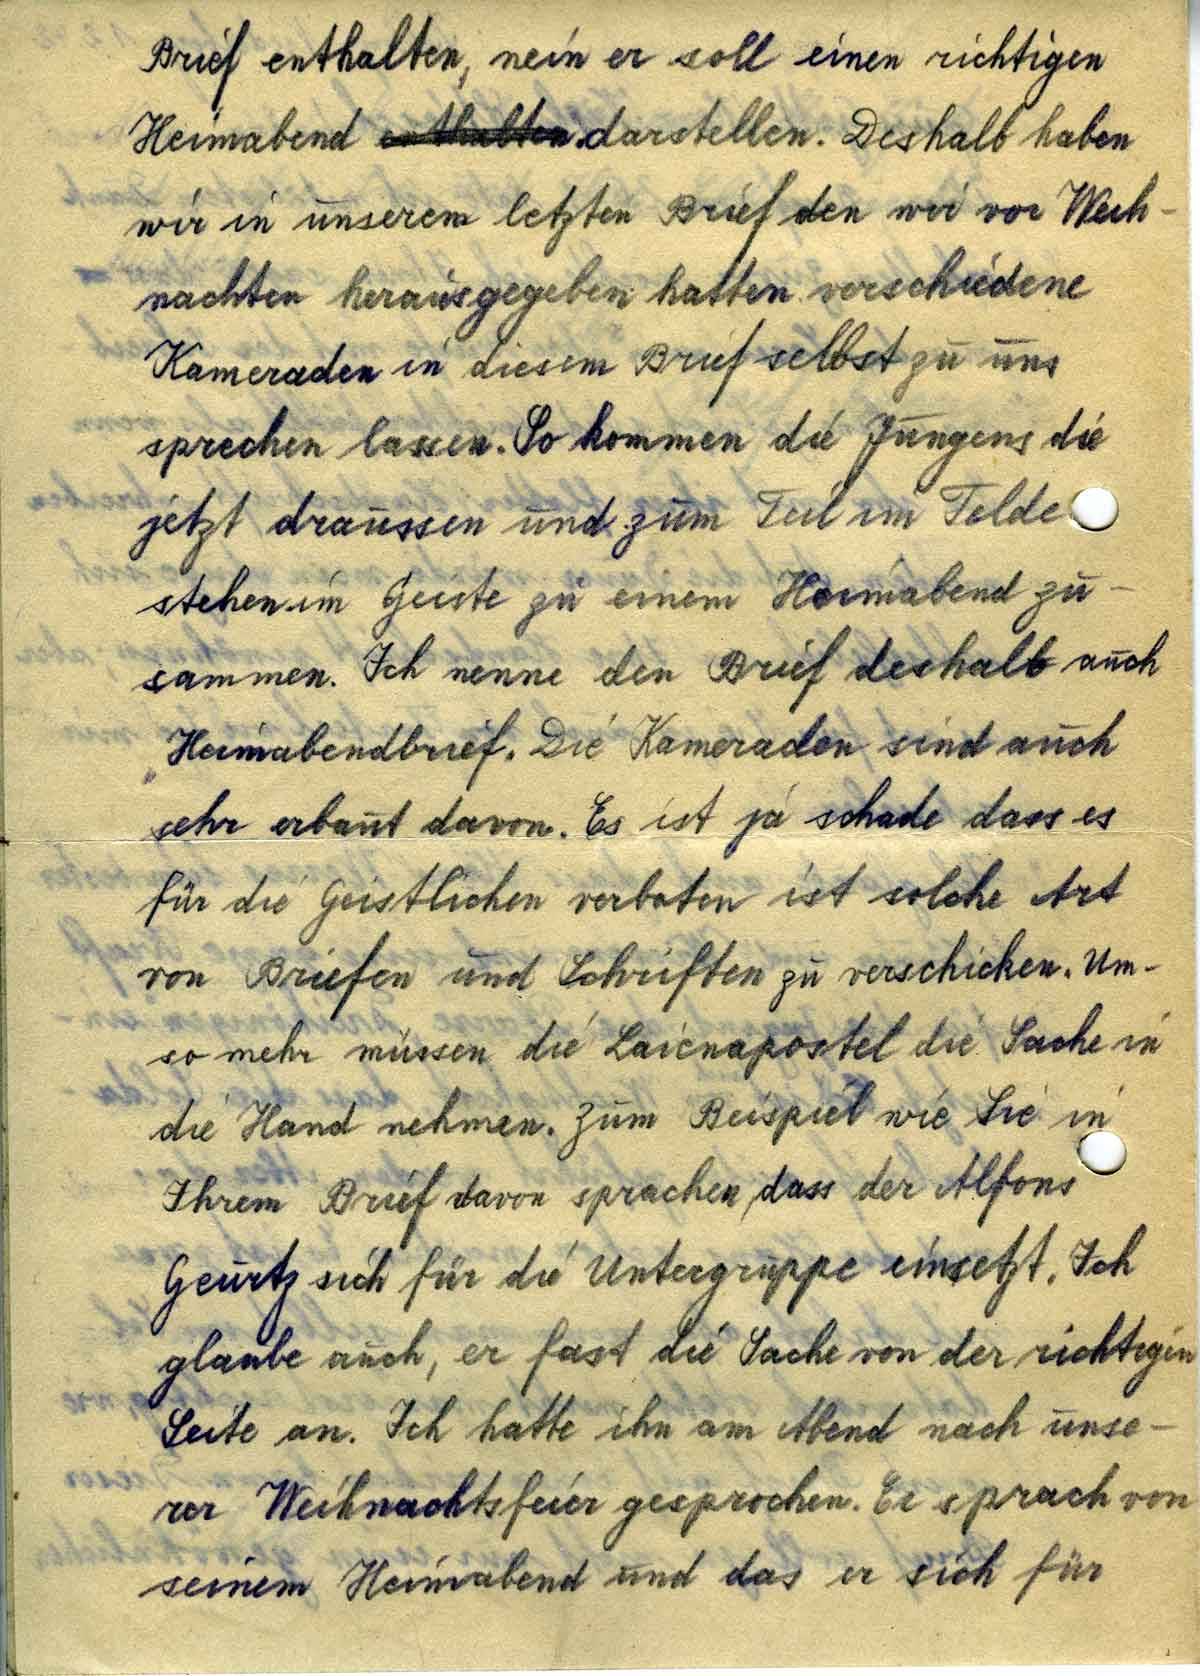 Brief enthalten, nein er soll einen richtigen
Heimabend enthalten darstellen. Deshalb haben
wir in unserem letzten Brief den wir vor Weih-
nachten herausgegeben hatten verschiedene
Kameraden in diesem Brief selbst zu uns
sprechen lassen. So kommen die Jungens die
jetzt draussen und zum Teil im Felde
stehen im Geiste zu einem Heimabend zu-
sammen. Ich nenne den Brief deshalb auch
„Heimabendbrief. Die Kameraden sind auch
sehr erbaut davon. Es ist ja schade dass es
für die Geistlichen verboten ist solche Art
von Briefen und Schriften zu verschicken. Um-
so mehr müssen die Laienapostel die Sache in
die Hand nehmen. Zum Beispiel wie Sie in
Ihrem Brief davon sprachen, dass der Alfons
Geurtz sich für die Untergruppe einsetzt. Ich
glaube auch, er fast die Sache von der richtigen
Seite an. Ich hatte ihn am Abend nach unse-
rer Weihnachtsfeier gesprochen. Er sprach von
seinem Heimabend und das er sich für